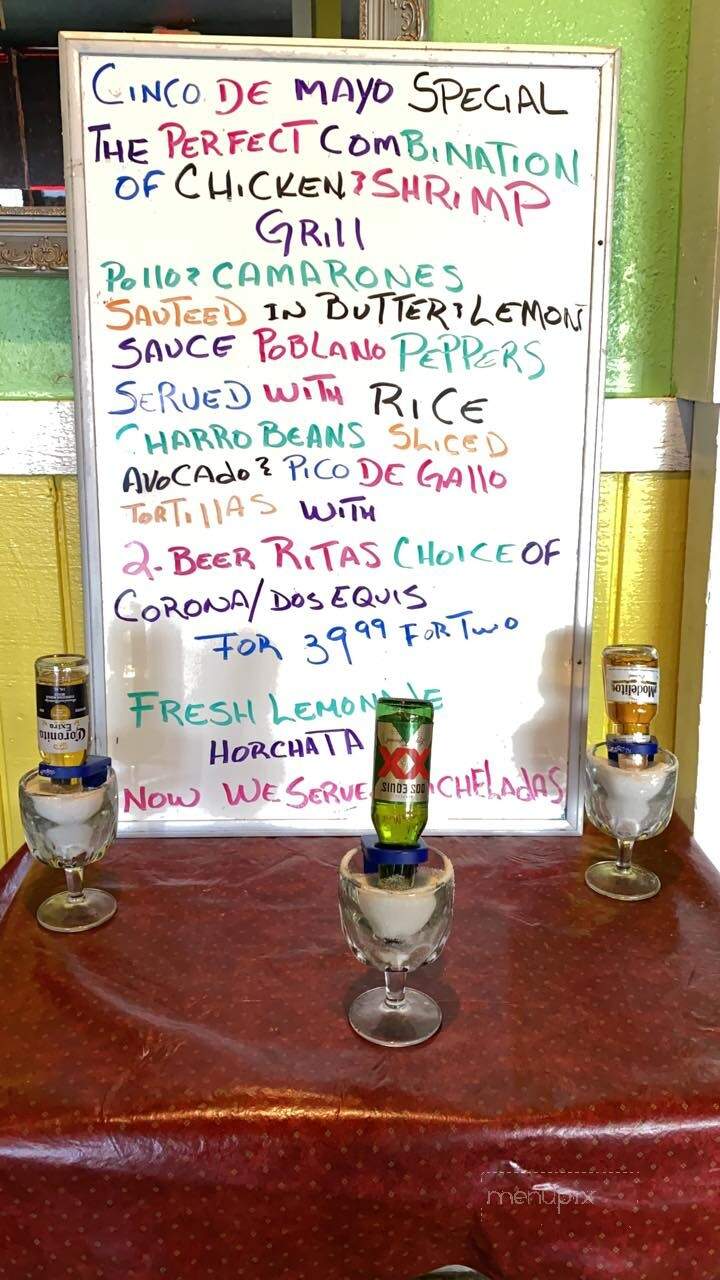 CINCO DE MAYO SPECIAL
THE PERFECT COMBINATION
OF CHICKEN & SHRIMP
GRIll
Pollo & CAMARONES
SAUTEED IN BUTTER & LEMON
SAUCE POBLANO PEPPERS
SERVED WITH RICE
CHARRO BEANS SLICED
AVOCADO & PICO DE GAllO
TORTIllAS WITH
2-BEER RITAS CHOICE OF
CORONA/DOS EQUIS
FOR 39.99 FOR TWO
FRESH
HORCHATA
NOW WE SERVE
Coronita
Extra
XX
DOS EQUIS
Modelitos
menupix